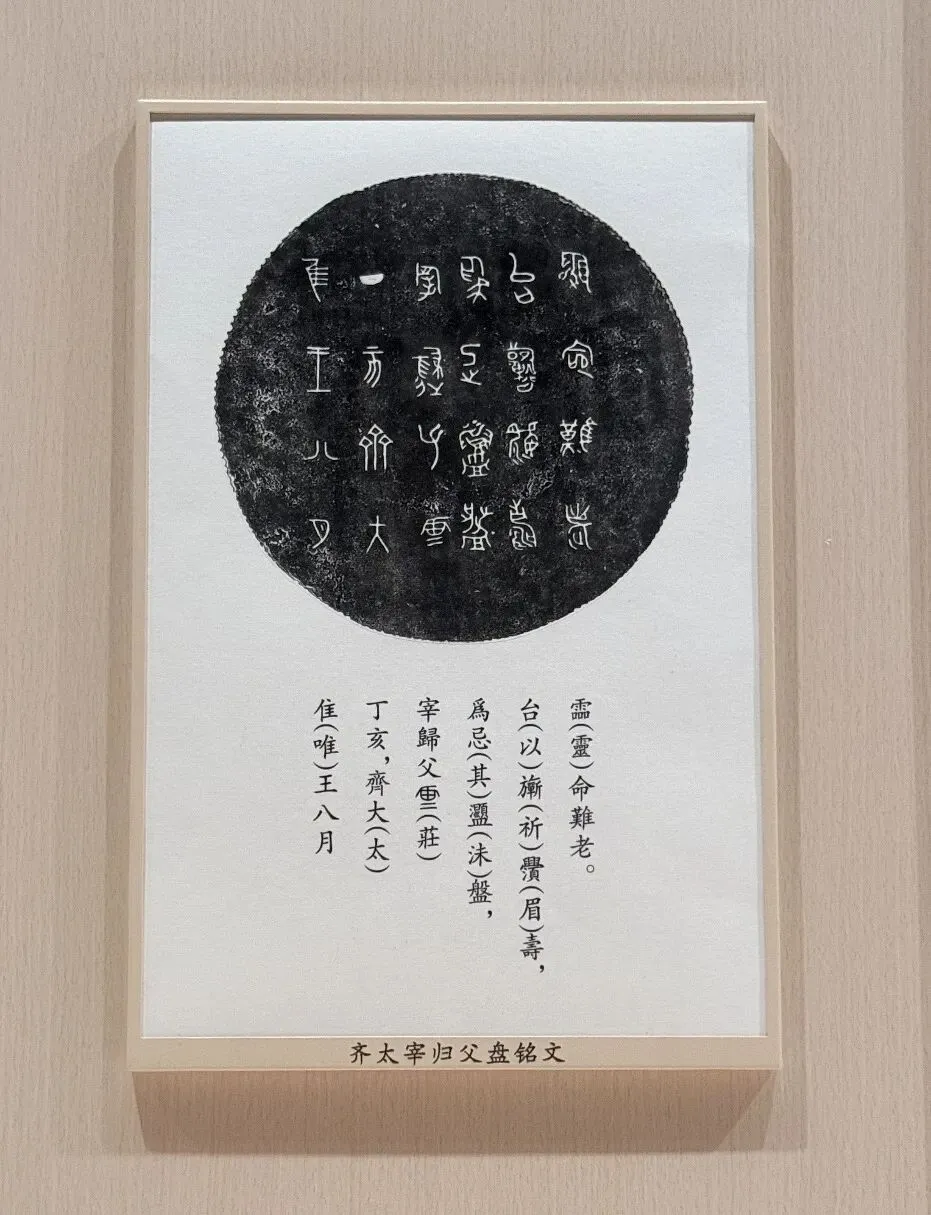 隹(唯)王八月
丁亥,齊大(太)
宰歸父(莊)
爲忌(其)(沬)盤,
台(以)旂(祈)(眉)壽,
霝(靈)命難老。
齐太宰归父盘铭文